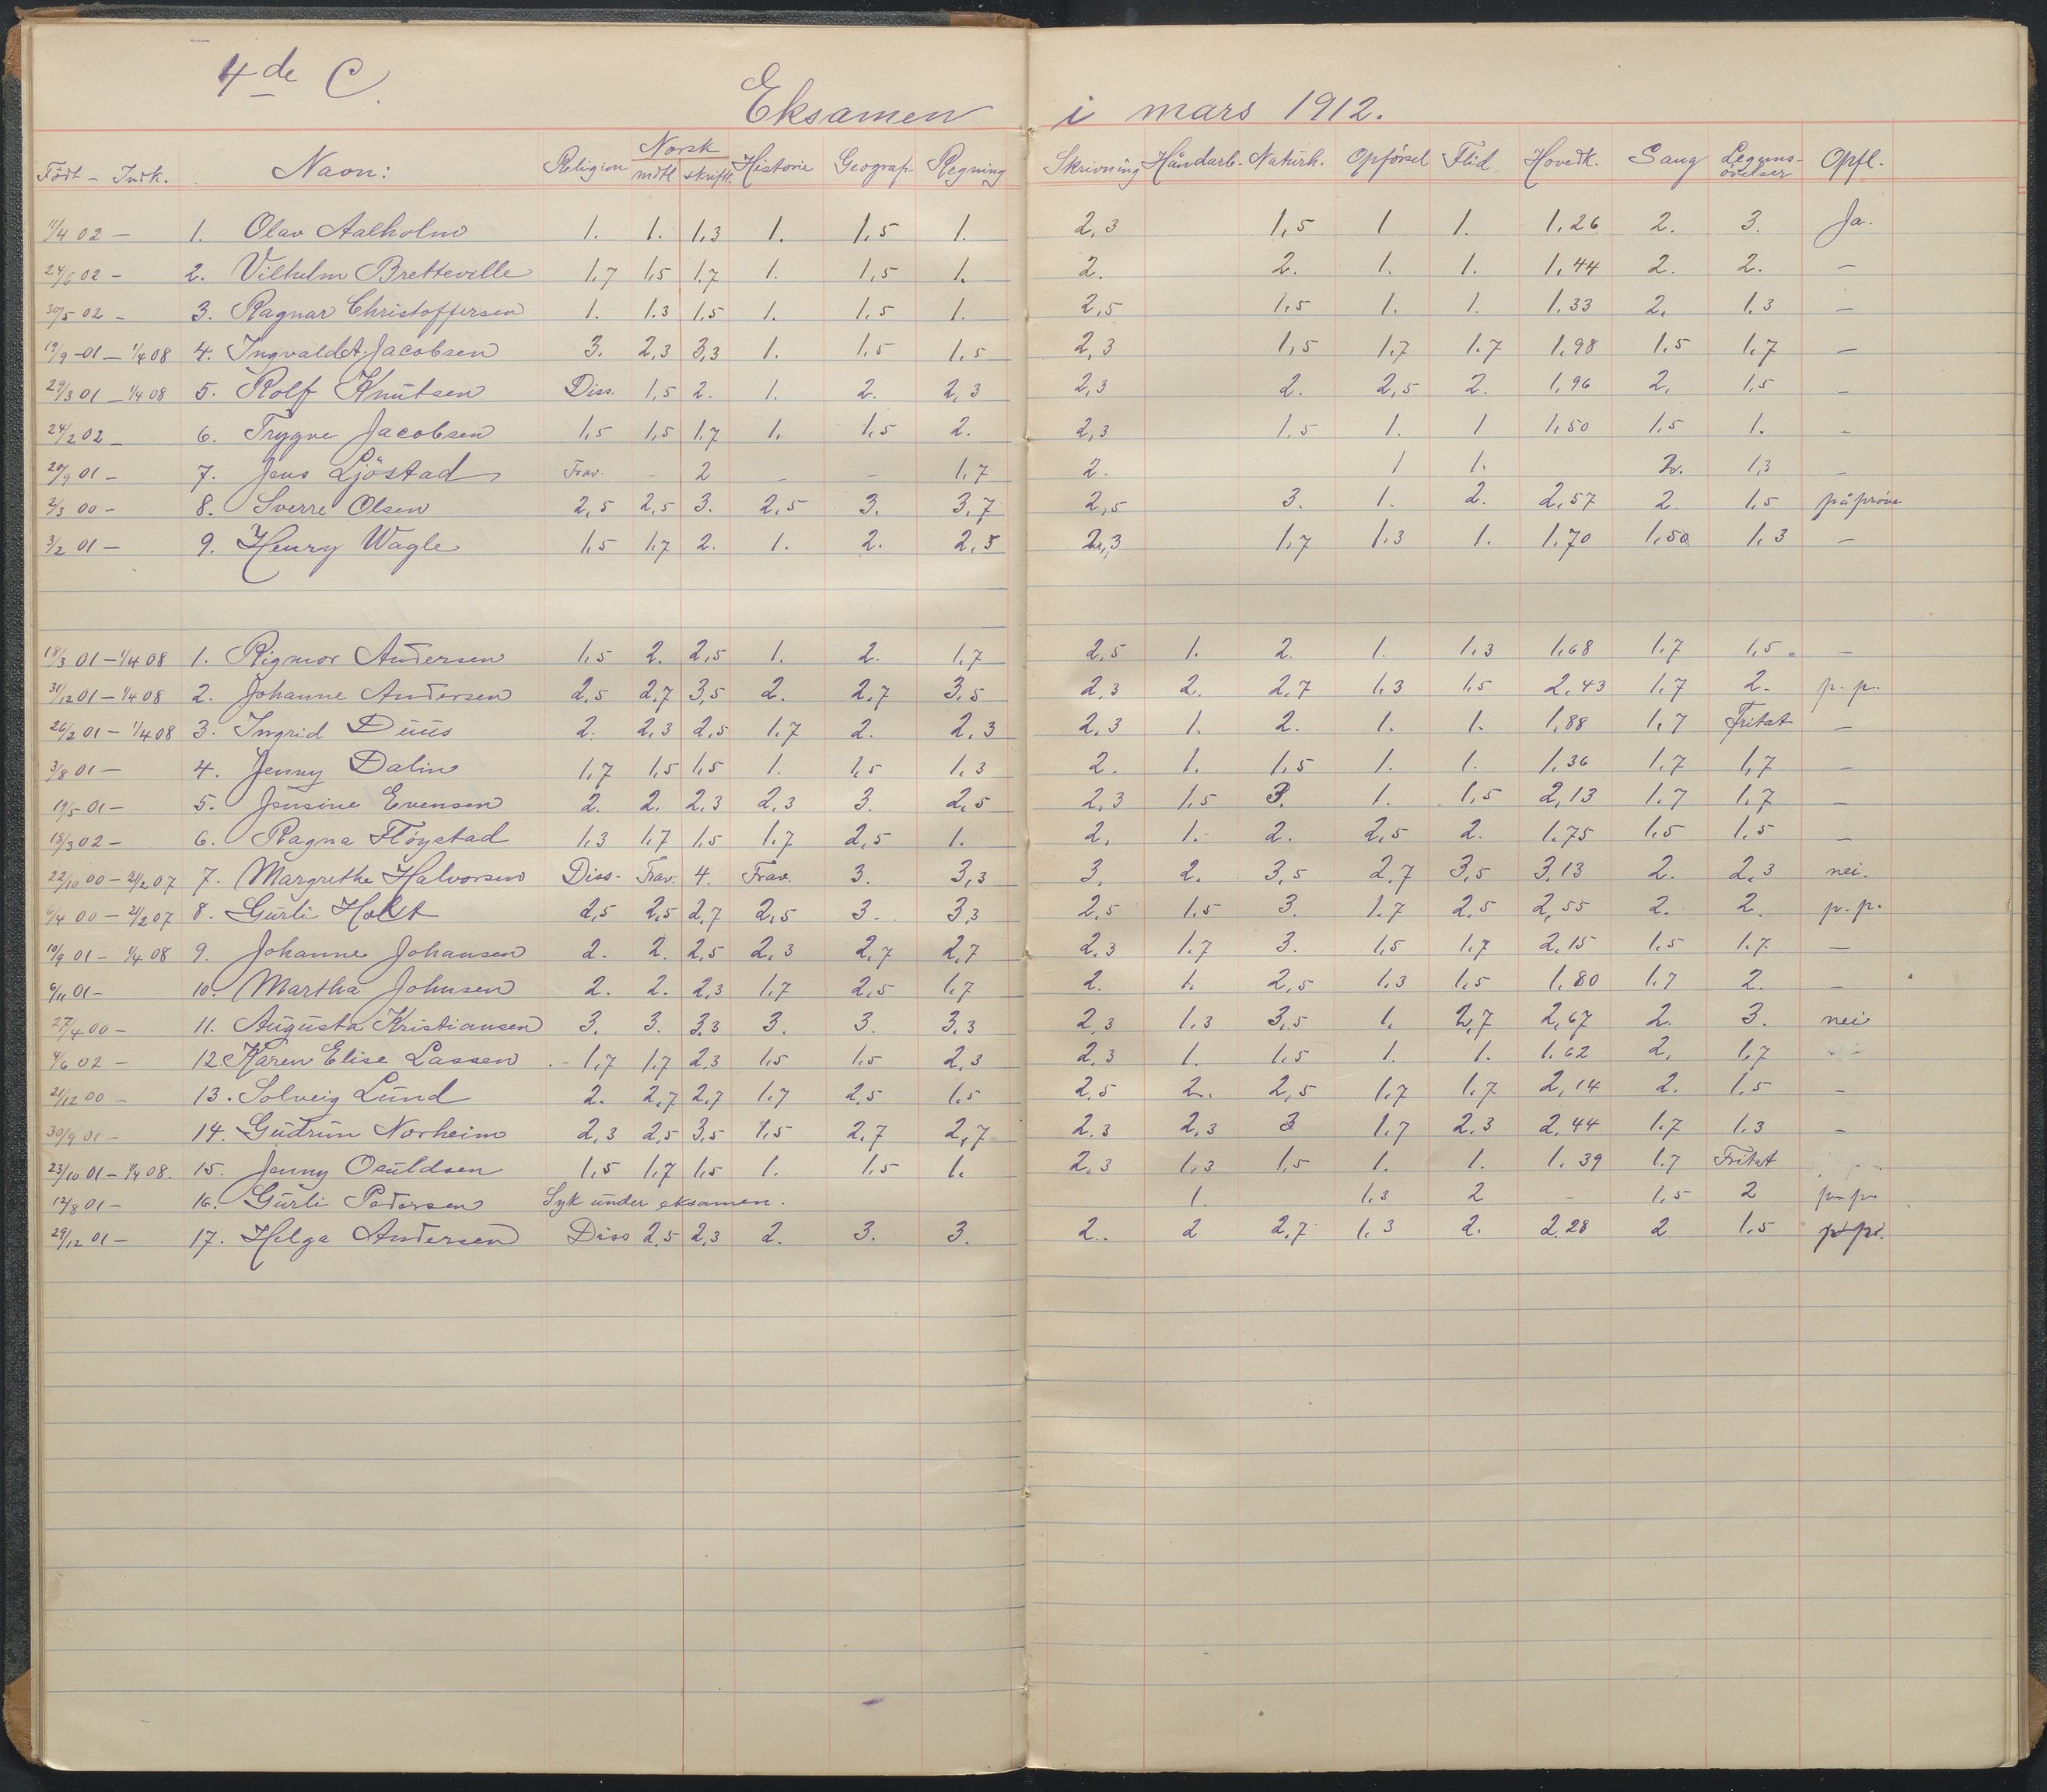 4de C.
Eksamen i mars 1912.
Født – Indk. Navn: Religion Norsk mdtl. skriftl. Historie Geograf. Regning Skrivning Håndarb. Naturk. Opførsel Flid Hovedk. Sang Legems-øvelser Opfl.
11/4 02 – 1. Olav Aalholm 1. 1. 1,3 1. 1,5 1. 2,3 1,5 1 1. 1,26 2. 3. Ja.
24/6 02 – 2. Vilhelm Bretteville 1,7 1,5 1,7 1. 1,5 1. 2. 2. 1. 1. 1,44 2. 2. –
30/5 02 – 3. Ragnar Christoffersen 1. 1.3 1,5 1. 1,5 1. 2,5 1,5 1. 1. 1.33 2. 1.3 –
19/9 -01 – 1/4 08 4. Ingvald A. Jacobsen 3. 2,3 3,3 1. 1,5 1,5 2,3 1,5 1,7 1.7 1,98 1,5 1,7 –
29/3 01 – 1/4 08 5. Rolf Knutsen Diss. 1,5 2. 1. 2. 2,3 2,3 2. 2,5 2. 1,96 2. 1,5 –
24/2 02 – 6. Trygve Jacobsen 1,5 1,5 1,7 1. 1,5 2. 2,3 1,5 1. 1 1,50 1,5 1. –
20/9 01 – 7. Jens Ljøstad Frav. – 2 – – 1,7 2. 1 1. 2. 1,3 –
2/3 00 – 8. Sverre Olsen 2,5 2,5 3. 2,5 3. 3,7 2,5 3. 1. 2. 2,57 2. 1,5 på prøve
3/2 01 – 9. Henry Wagle 1,5 1,7 2. 1. 2. 2,5 2,3 1,7 1.3 1. 1,70 1,50 1,3 –
18/3 01 – 1/4 08 1. Rigmor Andersen 1,5 2. 2,5 1. 2. 1,7 2,5 1. 2. 1. 1,3 1,68 1,7 1,5 –
31/12 01 – 1/4 08 2. Johanne Andersen 2,5 2,7 3,5 2. 2,7 3,5 2,3 2. 2,7 1,3 1,5 2,43 1,7 2. p. p.
26/2 01 – 1/4 08 3. Ingrid Duus 2. 2,3 2,5 1.7 2. 2,3 2,3 1. 2. 1. 1. 1,88 1,7 Fritat –
3/8 01 – 4. Jenny Dalin 1,7 1,5 1,5 1. 1,5 1,3 2. 1. 1,5 1. 1. 1.36 1,7 1,7 –
19/5 01 – 5. Jensine Evensen 2. 2. 2,3 2,3 3. 2,5 2,3 1,5 3. 1. 1,5 2,13 1.7 1.7 –
18/3 02 – 6. Ragna Fløystad 1,3 1,7 1,5 1,7 2,5 1. 2. 1. 2. 2,5 2. 1.75 1,5 1,5 –
22/10 00 – 21/2 07 7. Margrethe Halvorsen Diss. Frav. 4. Frav. 3. 3,3 3. 2. 3,5 2,7 3,5 3,13 2. 2,3 nei.
6/4 00 – 21/2 07 8. Gurli Holst 2,5 2,5 2,7 2,5 3. 3,3 2,5 1,5 3. 1,7 2,5 2,55 2. 2. p. p.
10/9 01 – 1/4 08 9. Johanne Johansen 2. 2. 2,5 2,3 2,7 2,7 2,3 1,7 3. 1,5 1,7 2,15 1,5 1,7 –
6/11 01 – 10. Martha Johnsen 2. 2. 2,3 1,7 2,5 1,7 2. 1. 2,5 1,3 1,5 1,80 1,7 2. –
27/4 00 – 11. Augusta Kristiansen 3. 3. 3,3 3. 3. 3,3 2,3 1,3 3,5 1. 2,7 2,67 2. 3. nei
4/6 02 – 12. Karen Elise Lassen 1,7 1,7 2,3 1,5 1,5 2,3 2,3 1. 1,5 1. 1. 1,62 2. 1,7
21/12 00 – 13. Solveig Lund 2. 2,7 2,7 1,7 2,5 1,5 2,5 2. 2,5 1,7 1,7 2,14 2. 1,5 –
30/9 01 – 14. Gudrun Norheim 2,3 2,5 3,5 1,5 2,7 2,7 2,3 2,3 3 1,7 2,3 2,44 1,7 1,3 –
23/10 01 – 1/4 08. 15. Jenny Osuldsen 1,5 1,7 1,5 1. 1,5 1. 2,3 1,3 1,5 1. 1. 1,39 1,7 Fritat
12/8 01 – 16. Gurli Pedersen Syk under eksamen. 1. 1,3 2 – 1,5 2 p. p.
29/12 01 – 17. Helga Andersen Diss 2,5 2,3 2. 3. 3. 2. 2 2,7 1,3 2. 2,28 2 1,5 p. p.